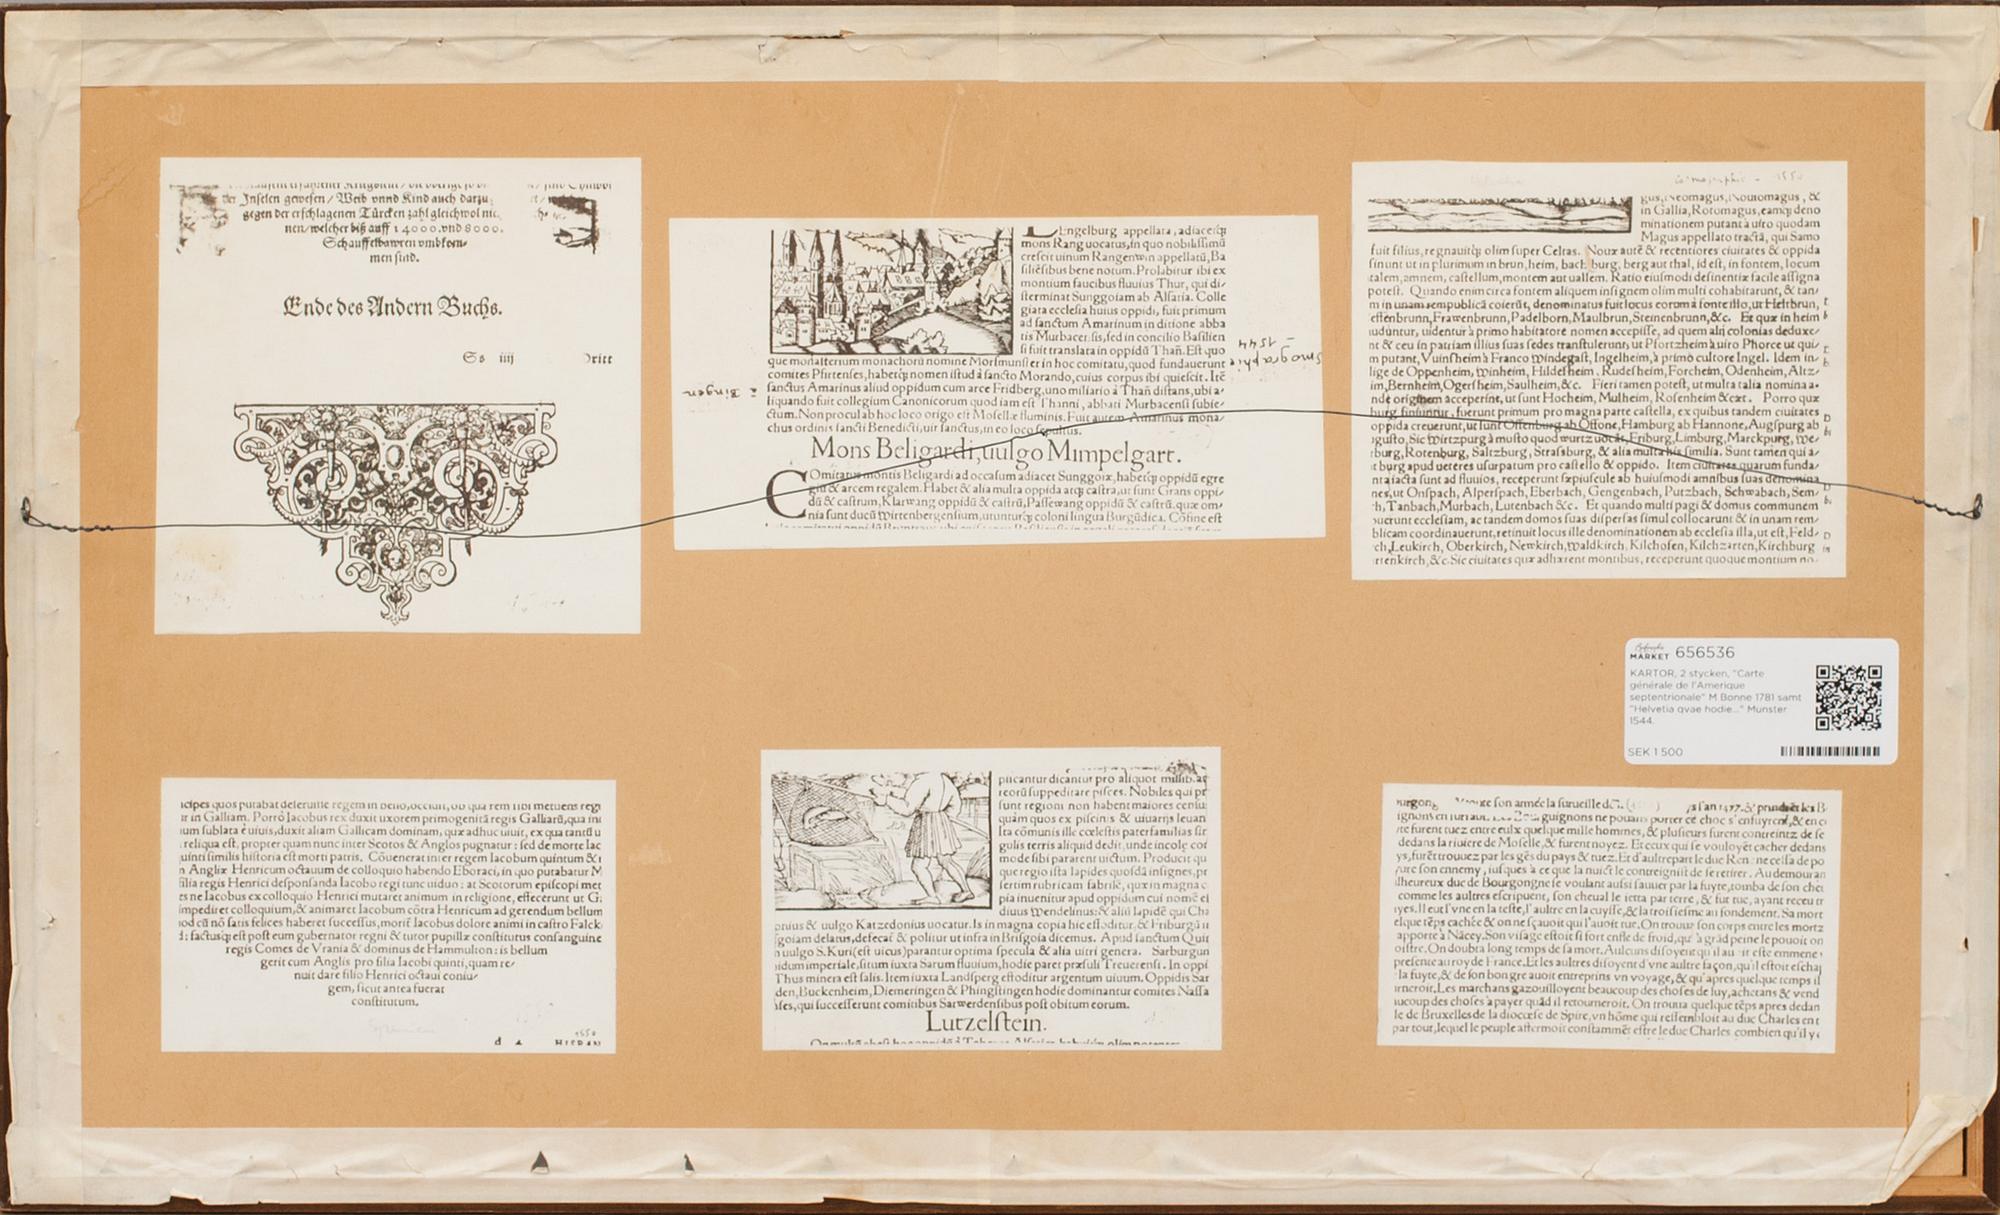 der Inseln gewesen / Weib vnnd Kind auch darzu
gegen der erschlagenen Türcken zahl gleichwol
nen/welcher biß auff 14000. vnd 8000.
Schauffelbawren vmbkom-
men sind.
Ende des Andern Buchs.
Ss iiij
Dritt
Engelburg appellata, adiacetq́
mons Rang uocatus, in quo nobilissimũ
crescit uinum Rangenwin appellatũ, Ba
siliẽsibus bene notum. Prolabitur ibi ex
montium faucibus fluuius Thur, qui di-
sterminat Sunggoiam ab Alsatia. Colle
giata ecclesia huius oppidi, fuit primum
ad sanctum Amarinum in ditione abba
tis Murbacensis, sed in concilio Basilien
si fuit translata in oppidũ Thañ. Est quo
que monasterium monachorũ nomine Morsmunster in hoc comitatu, quod fundauerunt
comites Pfirtenses, habetq́ nomen istud à sancto Morando, cuius corpus ibi quiescit. Itẽ
sanctus Amarinus aliud oppidum cum arce Fridberg, uno miliario à Thañ distans, ubi a-
liquando fuit collegium Canonicorum quod iam est Thanni, abbati Murbacensi subie-
ctum. Non procul ab hoc loco origo est Mosellæ fluminis. Fuit autem Amarinus mona-
chus ordinis sancti Benedicti, uir sanctus, in eo loco sepultus.
Mons Beligardi, uulgo Mimpelgart.
Comitatus montis Beligardi ad occasum adiacet Sunggoiæ, habetq́ oppidũ egre
giũ & arcem regalem. Habet & alia multa oppida atq́ castra, ut sunt Grans oppi-
dũ & castrum, Klarwang oppidũ & castrũ, Passewang oppidũ & castrũ, quæ om-
nia sunt ducũ Wirtenbergensium, utunturq́ coloni lingua Burgũdica. Cõfine est
smographie
- 1544
à Bingen
Cosmographie - 1550
gus, Neomagus, Nouiomagus, &
in Gallia, Rotomagus, eamq́ deno
minationem putant à uiro quodam
Magus appellato tractã, qui Samo
fuit filius, regnauitq́ olim super Celtas. Nouæ autẽ & recentiores ciuitates & oppida
finiunt ut in plurimum in brun, heim, bach, burg, berg aut thal, id est, in fontem, locum
talem, amnem, castellum, montem aut uallem. Ratio eiusmodi desinentiæ facile assigna
potest. Quando enim circa fontem aliquem insignem olim multi cohabitarunt, & tan-
m in unam rempublicã coierũt, denominatus fuit locus eorum à fonte illo, ut Heltbrun,
effenbrunn, Frawenbrunn, Padelborn, Maulbrun, Steinenbrunn, &c. Et quæ in heim
udũntur, uidentur à primo habitatore nomen accepisse, ad quem alij colonias deduxe-
nt & ceu in patriam illius suas sedes transtulerunt, ut Pfortzheim à uiro Phorce ut qui-
m putant, Vuinsheim à Franco Windegast, Ingelheim, à primo cultore Ingel. Idem in-
lige de Oppenheim, Winheim, Hildesheim. Rudesheim, Forcheim, Odenheim, Altz-
im, Bernheim, Ogersheim, Saulheim, &c. Fieri tamen potest, ut multa talia nomina a-
nde originem acceperint, ut sunt Hocheim, Mulheim, Rosenheim &cæt. Porro quæ
burg finiuntur, fuerunt primum pro magna parte castella, ex quibus tandem ciuitates
oppida creuerunt, ut sunt Offenburg ab Offone, Hamburg ab Hannone, Augspurg ab
ugusto, Sic Wirtzpurg à musto quod wurtz uocãt, Friburg, Limburg, Marckpurg, We-
rburg, Rotenburg, Saltzburg, Strasburg, & alia multa his similia. Sunt tamen qui a-
t burg apud ueteres usurpatum pro castello & oppido. Item ciuitates quarum funda-
nta iacta sunt ad fluuios, receperunt sæpiuscule ab huiusmodi amnibus suas denomina
nes, ut Onspach, Alperspach, Eberbach, Gengenbach, Putzbach, Schwabach, Sem-
h, Tanbach, Murbach, Lutenbach &c. Et quando multi pagi & domus communem
uerunt ecclesiam, ac tandem domos suas dispersas simul collocarunt & in unam rem-
blicam coordinauerunt, retinuit locus ille denominationem ab ecclesia illa, ut est, Feld-
ch, Leukirch, Oberkirch, Newkirch, Waldkirch, Kilchofen, Kilchzarten, Kirchburg
rtenkirch, &c. Sic ciuitates quæ adhærent montibus, receperunt quoque montium no-
MARKET 656536
KARTOR, 2 stycken, "Carte
générale de l'Amerique
septentrionale" M Bonne 1781 samt
"Helvetia qvae hodie..." Munster
1544.
SEK 1 500
icipes quos putabat deseruisse regem in bello, occidit, ob quã rem sibi metuens regi
ir in Galliam. Porrò Iacobus rex duxit uxorem primogenitã regis Galliarũ, qua ini
ium sublata è uiuis, duxit aliam Gallicam dominam, quæ adhuc uiuit, ex qua tantũ u
reliqua est, propter quam nunc inter Scotos & Anglos pugnatur: sed de morte Iac
uinti similis historia est morti patris. Cõuenerat inter regem Iacobum quintum & r
n Angliæ Henricum octauum de colloquio habendo Eboraci, in quo putabatur M
filia regis Henrici desponsanda Iacobo regi tunc uiduo: at Scotorum episcopi met
es ne Iacobus ex colloquio Henrici mutaret animum in religione, effecerunt ut G
impediret colloquium, & animaret Iacobum cõtra Henricum ad gerendum bellum
iod cũ nõ satis felices haberet successus, morit̃ Iacobus dolore animi in castro Falck
d: factusq́ est post eum gubernator regni & tutor pupillæ constitutus consanguine
regis Comes de Vrania & dominus de Hammulton: is bellum
gerit cum Anglis pro filia Iacobi quinti, quam re-
nuit dare filio Henrici octaui coniu-
gem, sicut antea fuerat
constitutum.
1550
d 4 HISPAN
plicantur dicantur pro aliquot millib. au
reorũ suppeditare pisces. Nobiles qui pr
sunt regioni non habent maiores censu
quàm quos ex piscinis & uiuarijs leuan
Ita cõmunis ille cœlestis paterfamilias sir
gulis terris aliquid dedit, unde incolę cor
mode sibi pararent uictum. Producit qu
que regio ista lapides quosdã insignes, pr
sertim rubricam fabrilẽ, quæ in magna c
pia inuenitur apud oppidum cui nomẽ el
diuus Wendelinus: & aliũ lapidẽ qui Cha
onius & uulgo Katzedonius uocatur. Is in magna copia hic effoditur, & Friburgũ ii
goiam delatus, defecat̃ & politur ut infra in Brisgoia dicemus. Apud sanctum Quir
n uulgo S. Kuris (est uicus) parantur optima specula & alia uitri genera. Sarburgun
idum imperiale, situm iuxta Sarum fluuium, hodie paret præsuli Treuerensi. In oppi
Thus minera est salis. Item iuxta Landsperg effoditur argentum uiuum. Oppidis Sar
den, Buckenheim, Diemeringen & Phingstingen hodie dominantur comites Nassa
ises, qui successerunt comitibus Sarwerdensibus post obitum eorum.
Lutzelstein.
urgong
ignons ne pouans porter ce choc s'enfuyrent, & en ce
te furent tuez entre eulx quelque mille hommes, & plusieurs furent contreintz de se
dedans la riuiere de Moselle, & furent noyez. Et ceux qui se vouloyẽt cacher dedans
ys, furẽt trouuez par les gẽs du pays & tuez. Et d'aultre part le duc René ne cessa de po
iure son ennemy, iusques à ce que la nuict le contreignist de se retirer. Au demouran
lheureux duc de Bourgongne se voulant aussi sauuer par la fuyte, tomba de son chei
comme les aultres escripuent, son cheual le ietta par terre, & fut tué, ayant receu tr
yes. Il eut l'vne en la teste, l'aultre en la cuysse, & la troisiesme au fondement. Sa mort
elque tẽps cachée & on ne sçauoit qui l'auoit tué. On trouua son corps entre les mortz
apporte à Nãcey. Son visage estoit si fort enflé de froid, qu'à grãd peine le pouoit on
oistre. On doubta long temps de sa mort. Aulcuns disoyent qu'il auoit esté emmené
presente au roy de France. Et les aultres disoyent d'vne aultre façon, qu'il estoit eschap
la fuyte, & de son bon gre auoit entreprins vn voyage, & qu'apres quelque temps il
irneroit. Les marchans gazouilloyent beaucoup des choses de luy, achetans & vend
iucoup des choses à payer quãd il retourneroit. On trouua quelque tẽps apres dedan
le de Bruxelles de la diocœse de Spire, vn hõme qui ressembloit au duc Charles en t
par tout, lequel le peuple affermoit constammẽt estre le duc Charles combien qu'il y